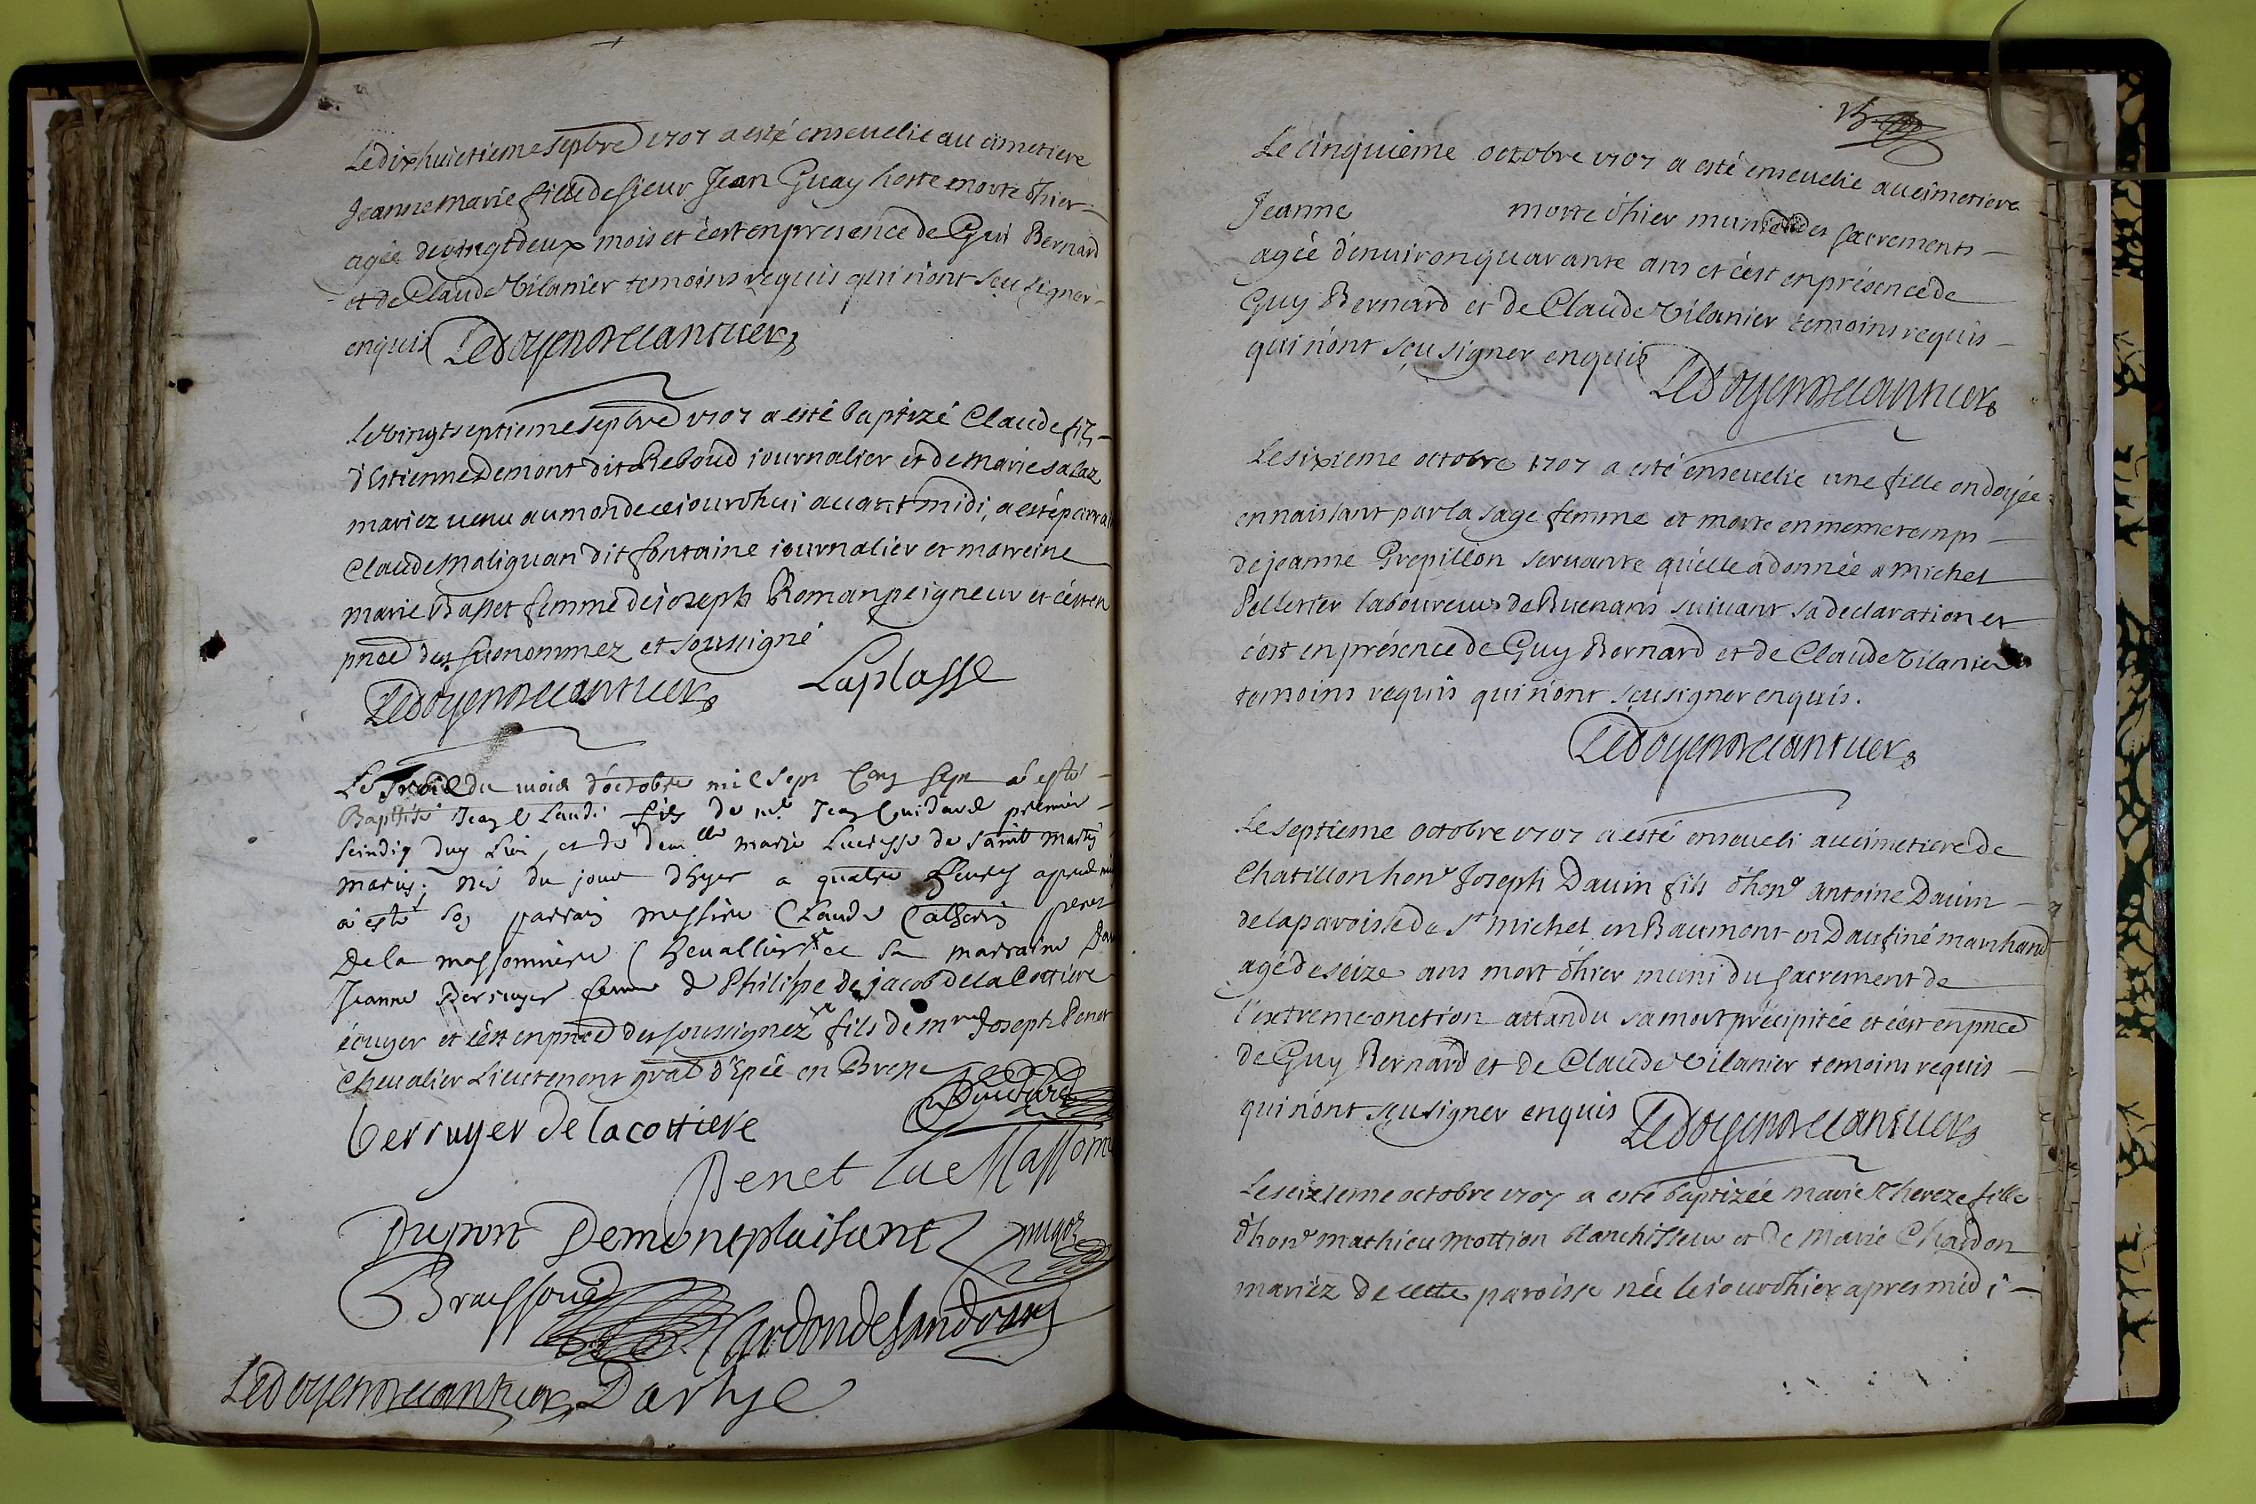 Le dixhuictieme septbre 1707 a esté ensevelie au cimetiere
Jeanne marie fille de sieur Jean Guay hoste morte d'hier
agée de vingt deux mois et c'est en presence de Gui Bernard
et de Claude Vilanier temoins requis qui n'ont sçu signer
enquis Ledoyen
Le vingtseptieme septbre 1707 a esté baptizé Claude fils
d'Estienne Demont dit Reboud journalier et de Marie salaz
mariez venu au monde ce jourdhui avant midi, a esté parrai
Claude Maliguan dit fontaine journalier et marreine
marie Basset femme de joseph Roman peigneur et c'est en
pnce des susnommez et soussigné
Ledoyen Laplasse
Le Troisie du mois d'octobre mil sept Cens sept a esté
Baptisé Jean Claude fils de Mr Jean Guidard premier
scindiq et de demlle marie Lucresse de saint
maries; né du jour d'hyer a quatre heures apres mi
a esté son parrain messire Claude Catherin penet
De la massonniere Chevallier et sa marraine Dam
Jeanne Berruyer femme de Philippe de jacob de la Cottiere
écuyer et c'est en pnce des soussignez fils de mre Joseph Penet
Chevalier Lieutenent gral d'Epée en Bresse
Berruyer de la cottiere Guidard
Penet La Massonni
Duport Demonteplaisant
Brassoud Cardon de sandrans
Ledoyen
Le cinquieme octobre 1707 a esté ensevelie au cimetiere
Jeanne morte d'hier munie des sacrements
agée d'environ quarante ans et c'est en présence de
Guy Bernard et de Claude Vilanier temoins requis
qui n'ont sçu signer enquis
Ledoyen
Le sixieme octobre 1707 a esté ensevelie une fille ondoyée
en naissant par la sage femme et morte en meme temps
de jeanne Prepillon servante qu'elle a donnée a Michel
Pelletier laboureur de Buenans suivant sa declaration et
c'est en présence de Guy Bernard et de Claude Vilanier
temoins requis qui n'ont sçu signer enquis.
Ledoyen
Le septieme octobre 1707 a esté enseveli au cimetiere de
Chatillon hone Joseph Davin fils d'hone antoine Davin
de la paroisse de St michel en Baumont en Daufiné marchand
agé de seize ans mort d'hier muni du sacrement de
l'extremeonction attandu sa mort précipitée et c'est en pnce
de Guy Bernard et de Claude Vilanier temoins requis
qui n'ont sçu signer enquis Ledoyen
Le seizieme octobre 1707 a esté baptizée marie Thereze fille
d'hone mathieu mottion blanchisseur et de Marie Chardon
mariez de cette paroisse née le jour d'hier apres midi